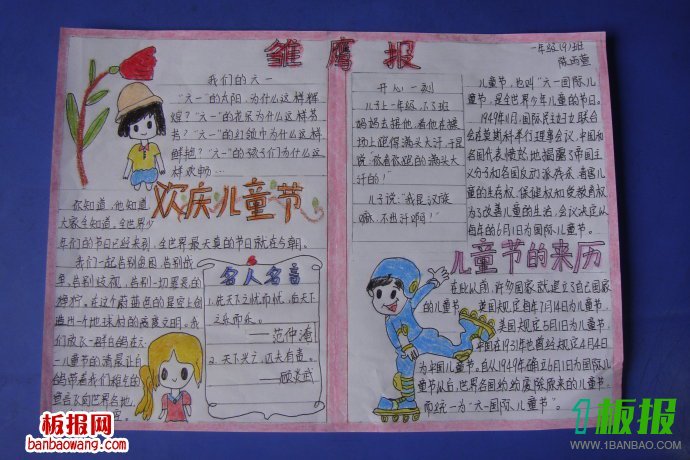 雏鹰报
一年级(9)班
我们的六一
"六一"的太阳,为什么这样辉
煌?"六一"的花朵为什么这样芬
芳?"六一"的红领巾为什么这样
鲜艳?"六一"的孩子们为什么这
样欢畅……
欢庆儿童节
你知道,他知道
大家全知道。全世界少
年们的节日已经来到,全世界最天真的节日就在今朝。
我们一起告别贫困 告别战
告别歧视,告别一切罪恶的
在这个蔚蓝色的星空上创
造出一个地球村的高度文明。我
名人名言
1.先天下之忧而忧,后天下
之乐而乐。
——范仲淹
2.天下兴亡,匹夫有责。
——顾炎武
开心一刻
儿子上一年级,下了班
妈妈去接他,看他在操
场上跑得满头大汗,于是
说:你看你跑的满头大
汗的!
儿子说:"我是汉族
嘛,不出汗吗!
儿童节,也叫"六一国际儿
童节,是全世界少年儿童的节日。
1949年11月,国际民主妇女联合
会在莫斯科举行理事会议,中国和
各国代表愤怒地揭露了帝国主
义分子和各国反动派残杀、毒害儿
童的生存权、保健权和受教育权
为了改善儿童的生活,会议决定以
每年的6月1日为国际儿童节。
儿童节的来历
在此以前,许多国家就建立自己国家
的儿童节,
英国规定每年7月14日为儿童节,
美国规定5月1日为儿童节,
中国在1931年也曾经规定4月4日
为中国儿童节。自从1949年确立6月1日为国际儿童
节以后,世界各国纷纷废除原来的儿童节,
而统一为"六一国际儿童节"。
板报网
banbaowang.com
1板报
WWW.1BANBAO.COM